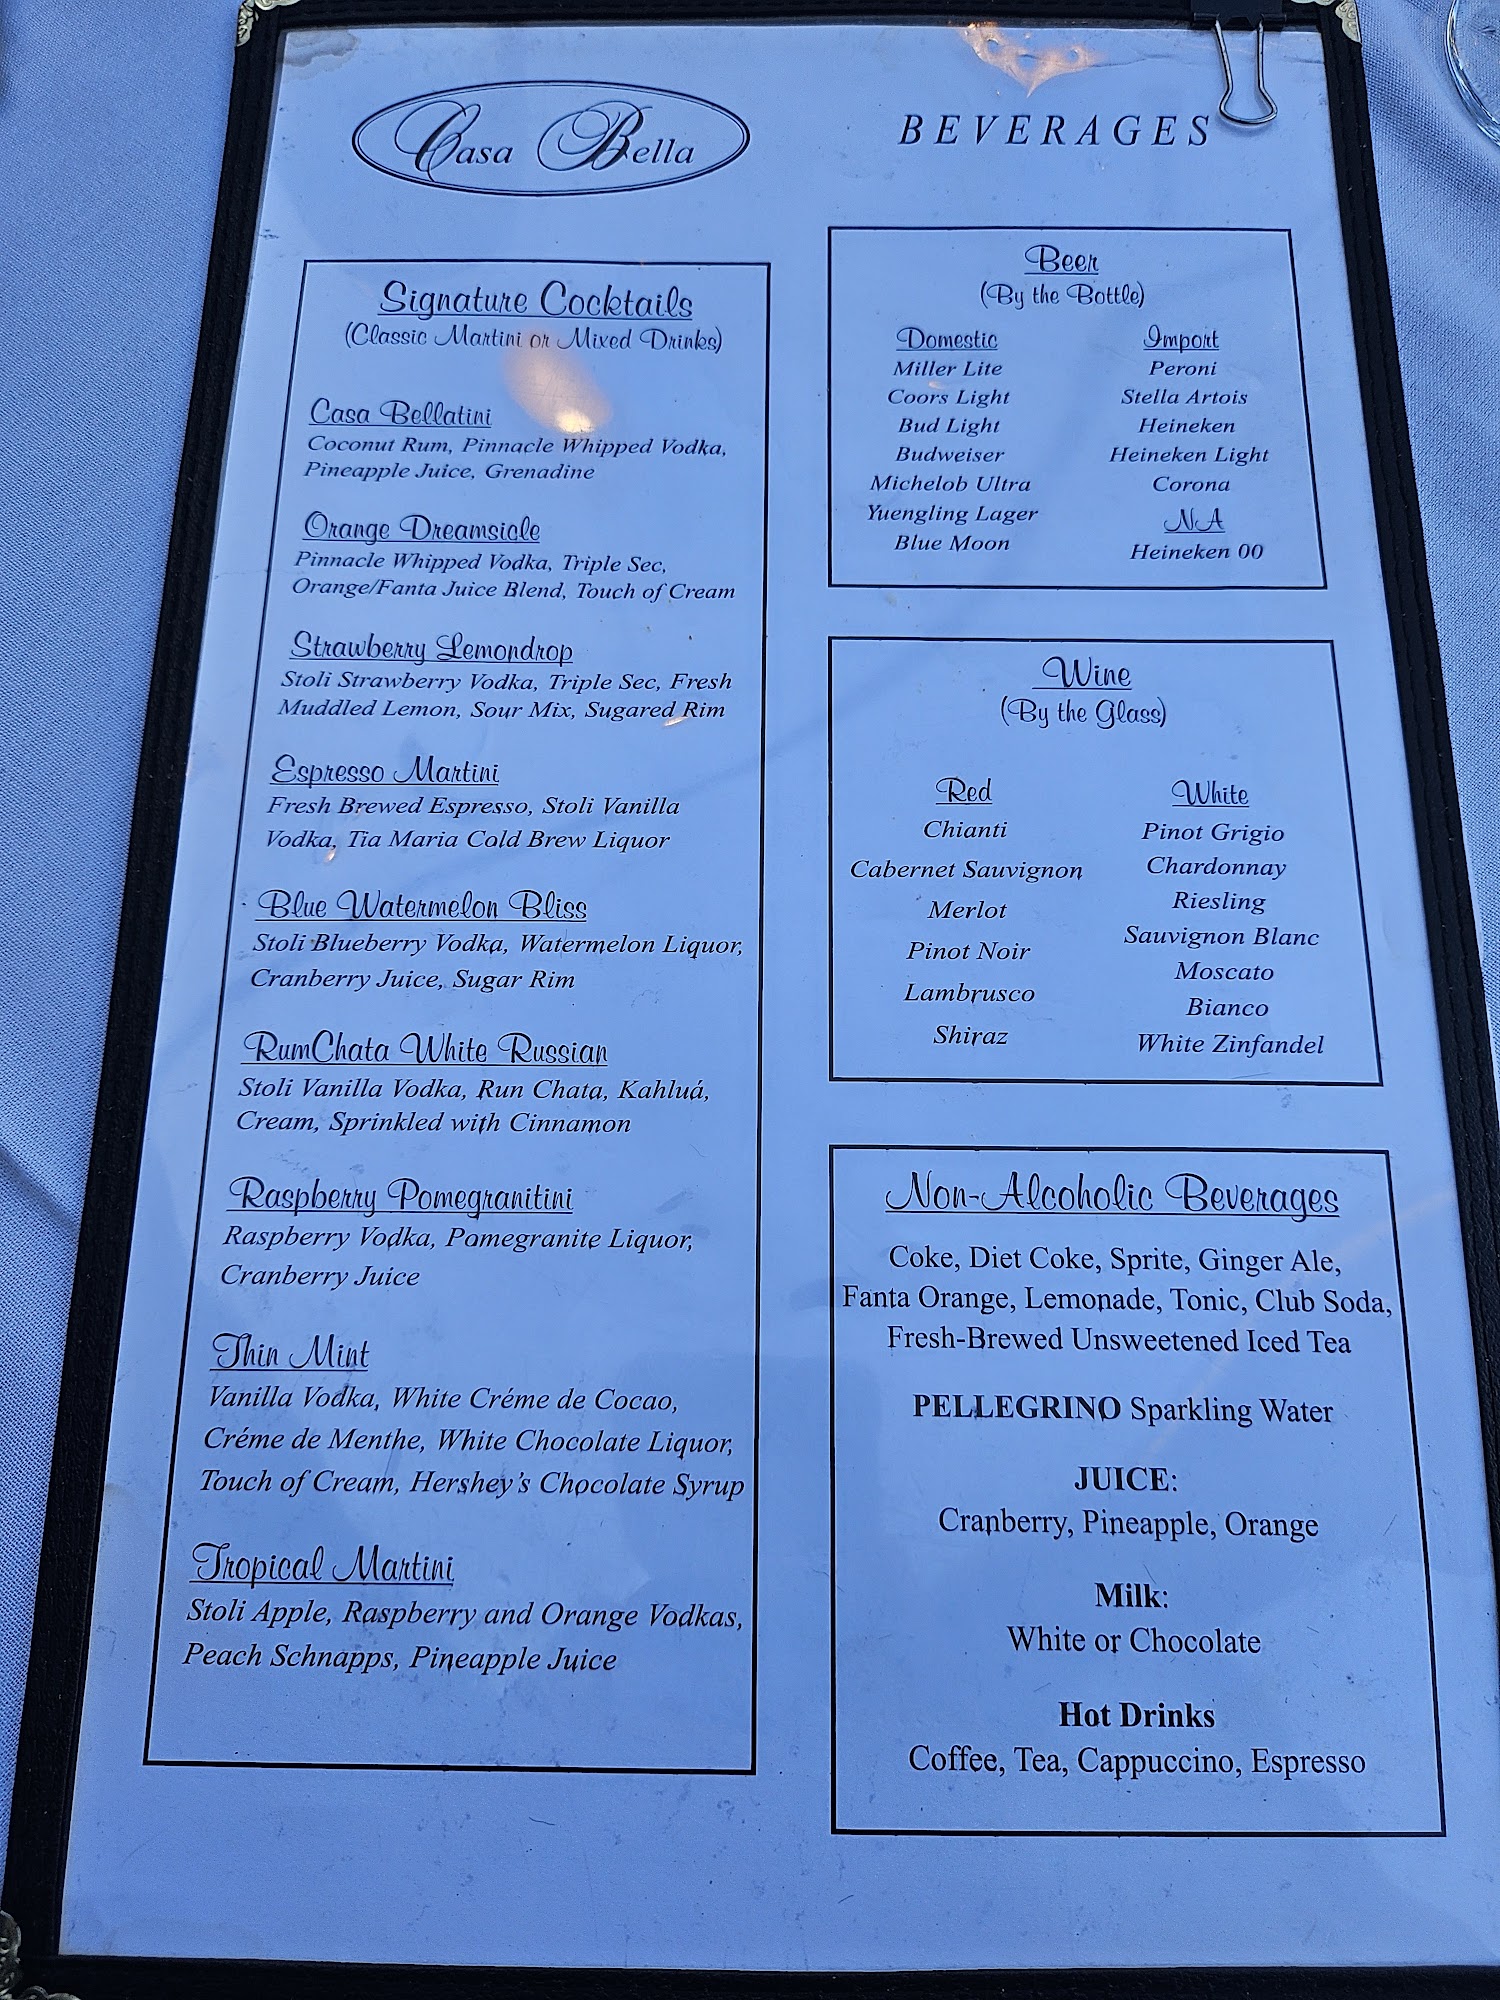 Casa Bella
BEVERAGES
Signature Cocktails
(Classic Martini or Mixed Drinks)
Casa Bellatini
Coconut Rum, Pinnacle Whipped Vodka,
Pineapple Juice, Grenadine
Orange Dreamsicle
Pinnacle Whipped Vodka, Triple Sec,
Orange/Fanta Juice Blend, Touch of Cream
Strawberry Lemondrop
Stoli Strawberry Vodka, Triple Sec, Fresh
Muddled Lemon, Sour Mix, Sugared Rim
Espresso Martini
Fresh Brewed Espresso, Stoli Vanilla
Vodka, Tia Maria Cold Brew Liquor
Blue Watermelon Bliss
Stoli Blueberry Vodka, Watermelon Liquor,
Cranberry Juice, Sugar Rim
RumChata White Russian
Stoli Vanilla Vodka, Run Chata, Kahluá,
Cream, Sprinkled with Cinnamon
Raspberry Pomegranitini
Raspberry Vodka, Pomegranite Liquor,
Cranberry Juice
Thin Mint
Vanilla Vodka, White Créme de Cocao,
Créme de Menthe, White Chocolate Liquor,
Touch of Cream, Hershey's Chocolate Syrup
Tropical Martini
Stoli Apple, Raspberry and Orange Vodkas,
Peach Schnapps, Pineapple Juice
Beer
(By the Bottle)
Domestic
Miller Lite
Coors Light
Bud Light
Budweiser
Michelob Ultra
Yuengling Lager
Blue Moon
Import
Peroni
Stella Artois
Heineken
Heineken Light
Corona
NA
Heineken 00
Wine
(By the Glass)
Red
Chianti
Cabernet Sauvignon
Merlot
Pinot Noir
Lambrusco
Shiraz
White
Pinot Grigio
Chardonnay
Riesling
Sauvignon Blanc
Moscato
Bianco
White Zinfandel
Non-Alcoholic Beverages
Coke, Diet Coke, Sprite, Ginger Ale,
Fanta Orange, Lemonade, Tonic, Club Soda,
Fresh-Brewed Unsweetened Iced Tea
PELLEGRINO Sparkling Water
JUICE:
Cranberry, Pineapple, Orange
Milk:
White or Chocolate
Hot Drinks
Coffee, Tea, Cappuccino, Espresso